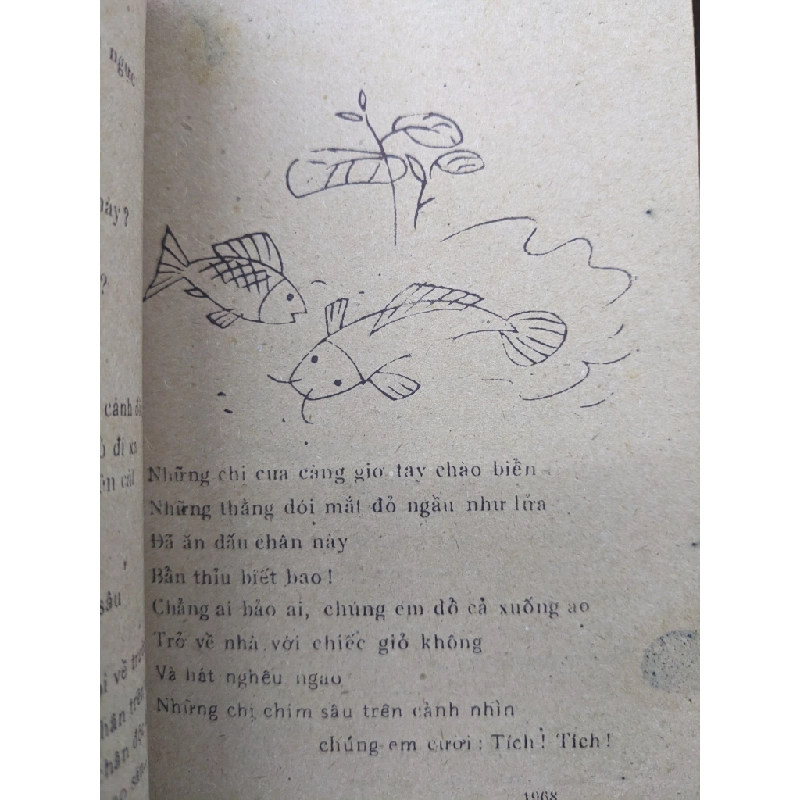 ngực
này?
?
cánh
đi
sâu
về
Những chị cua càng giơ tay chào biển
Những thằng dói mắt đỏ ngầu như lửa
Đã ăn dấu chân này
Bẩn thỉu biết bao!
Chẳng ai bảo ai, chúng em đổ cả xuống ao
Trở về nhà với chiếc giỏ không
Và hát nghêu ngao
Những chị chim sâu trên cành nhìn
chúng em cười: Tích! Tích!
1968